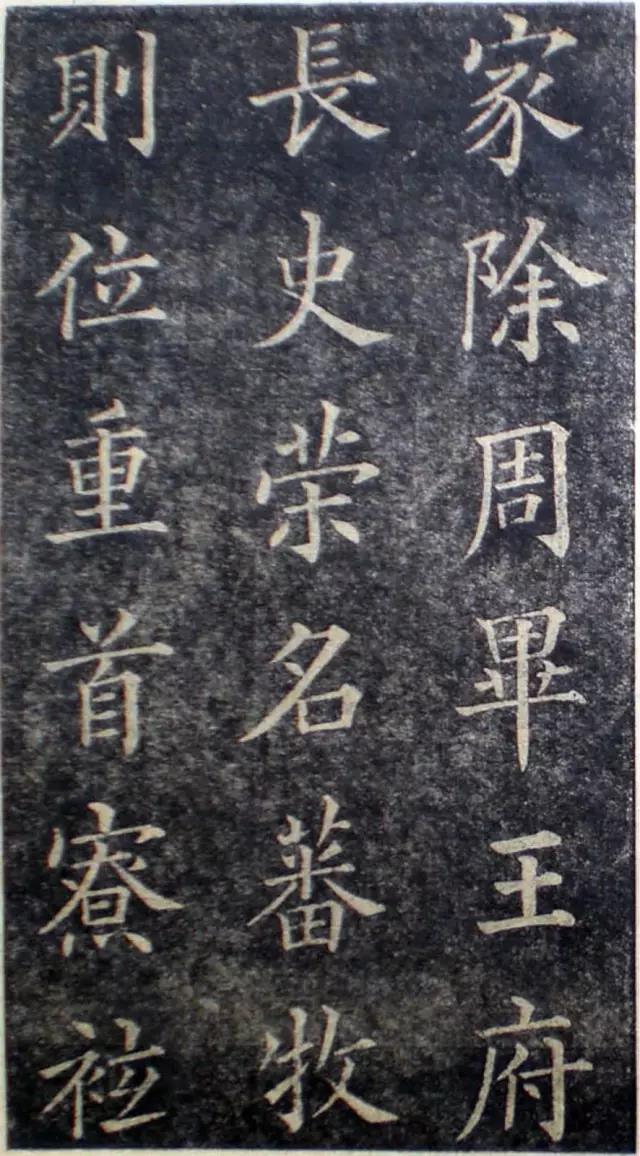 家除周畢王府
長史荣名蕃牧
則位重首寮袨